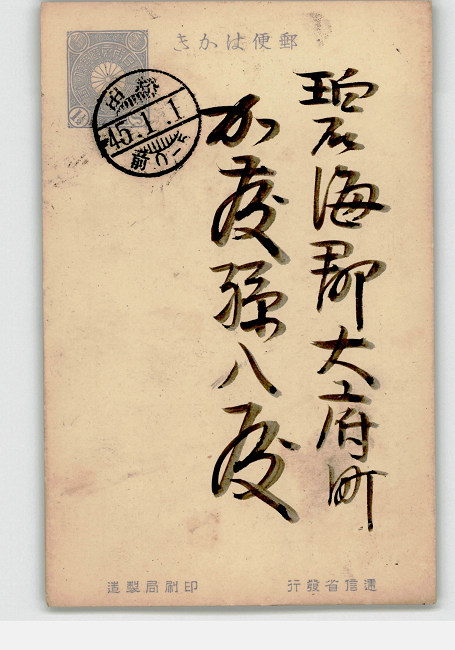 郵便はかき
碧海郡大府町
加藤孫八殿
45.1.1
遞信省發行
印刷局製造